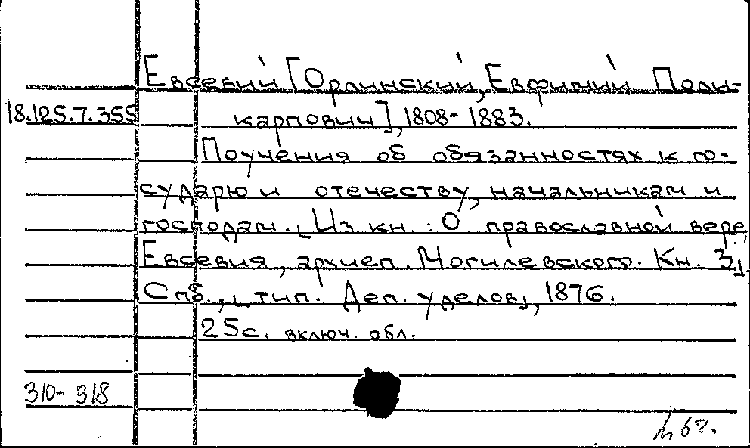 Евсевий [Орлинский, Евфимий Поли-
18.125.7.355 карпович], 1808-1883.
Поучения об обязанностях к го-
сударю и отечеству, начальникам и
господам. [Из кн.: О православной вере
Евсевия, архиеп. Могилевского. Кн. 3]
Спб., [тип. Деп. уделов], 1876.
25с. включ. обл.
310-318
67.